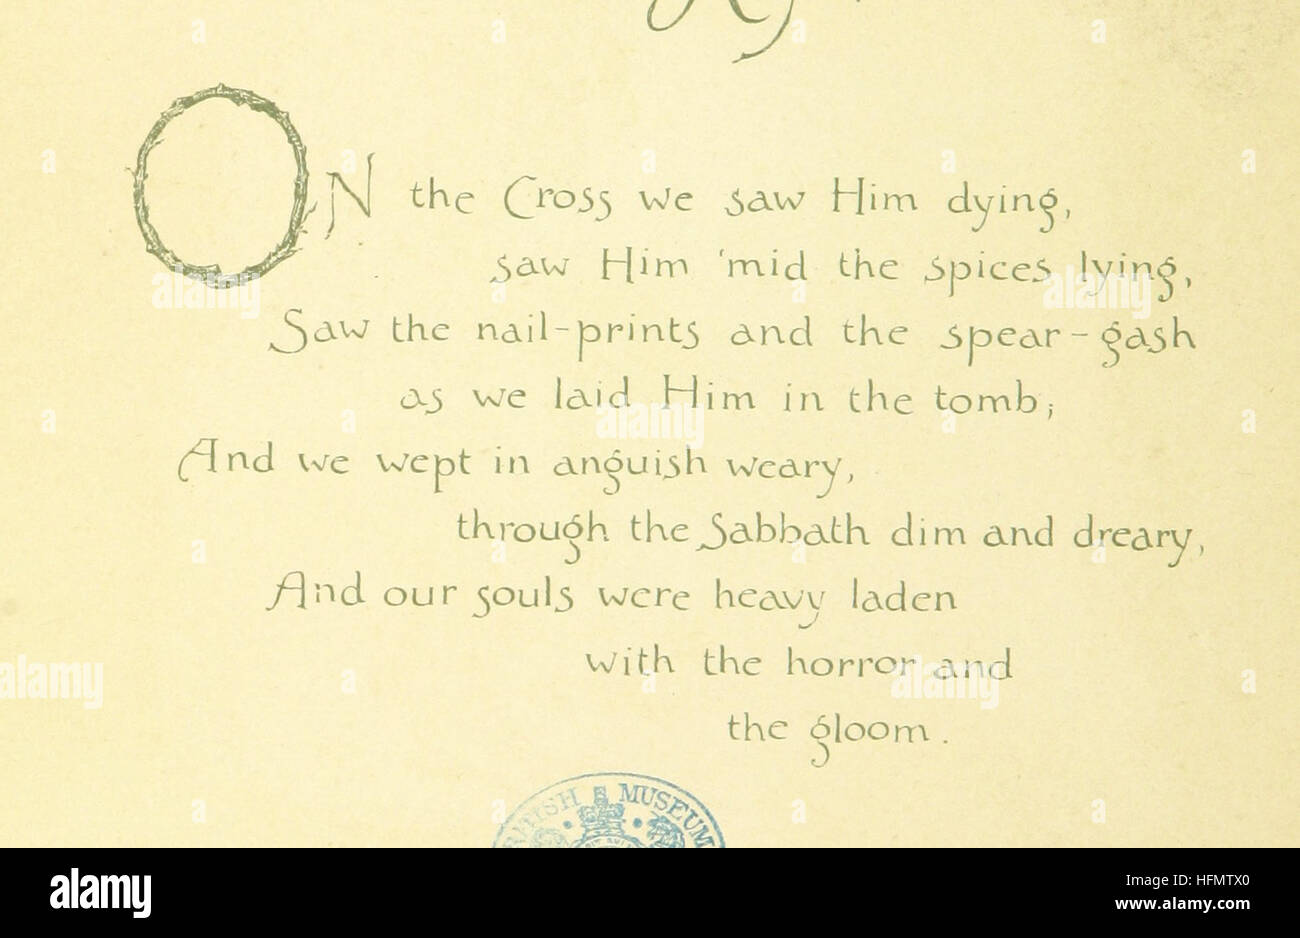 ON the Cross we saw Him dying,
saw Him 'mid the spices lying,
Saw the nail-prints and the spear-gash
as we laid Him in the tomb;
And we wept in anguish weary,
through the Sabbath dim and dreary,
And our souls were heavy laden
with the horror and
the gloom.
BRITISH MUSEUM
alamy
alamy
alamy
alamy
alamy
alamy
Image ID: HFMTX0
www.alamy.com